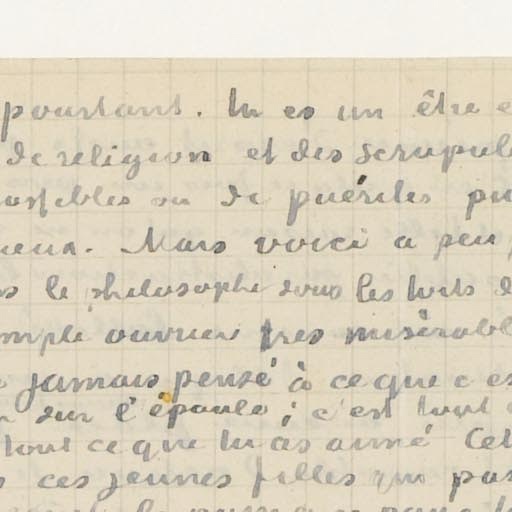 pourtant. Tu es un être e
de religion et des scrupul
ou de puériles pu
Mais voici à peu p
le philosophe sous les toits d
ouvrier très misérabl
jamais pensé à ce que c'es
sur l'épaule ; c'est tout
tout ce que tu as aimé Cet
ces jeunes filles qui pas